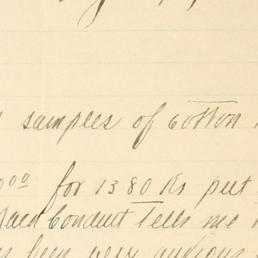 samples of Cotton
for 1380 Ks put
Conduit Tells me
been very anxious